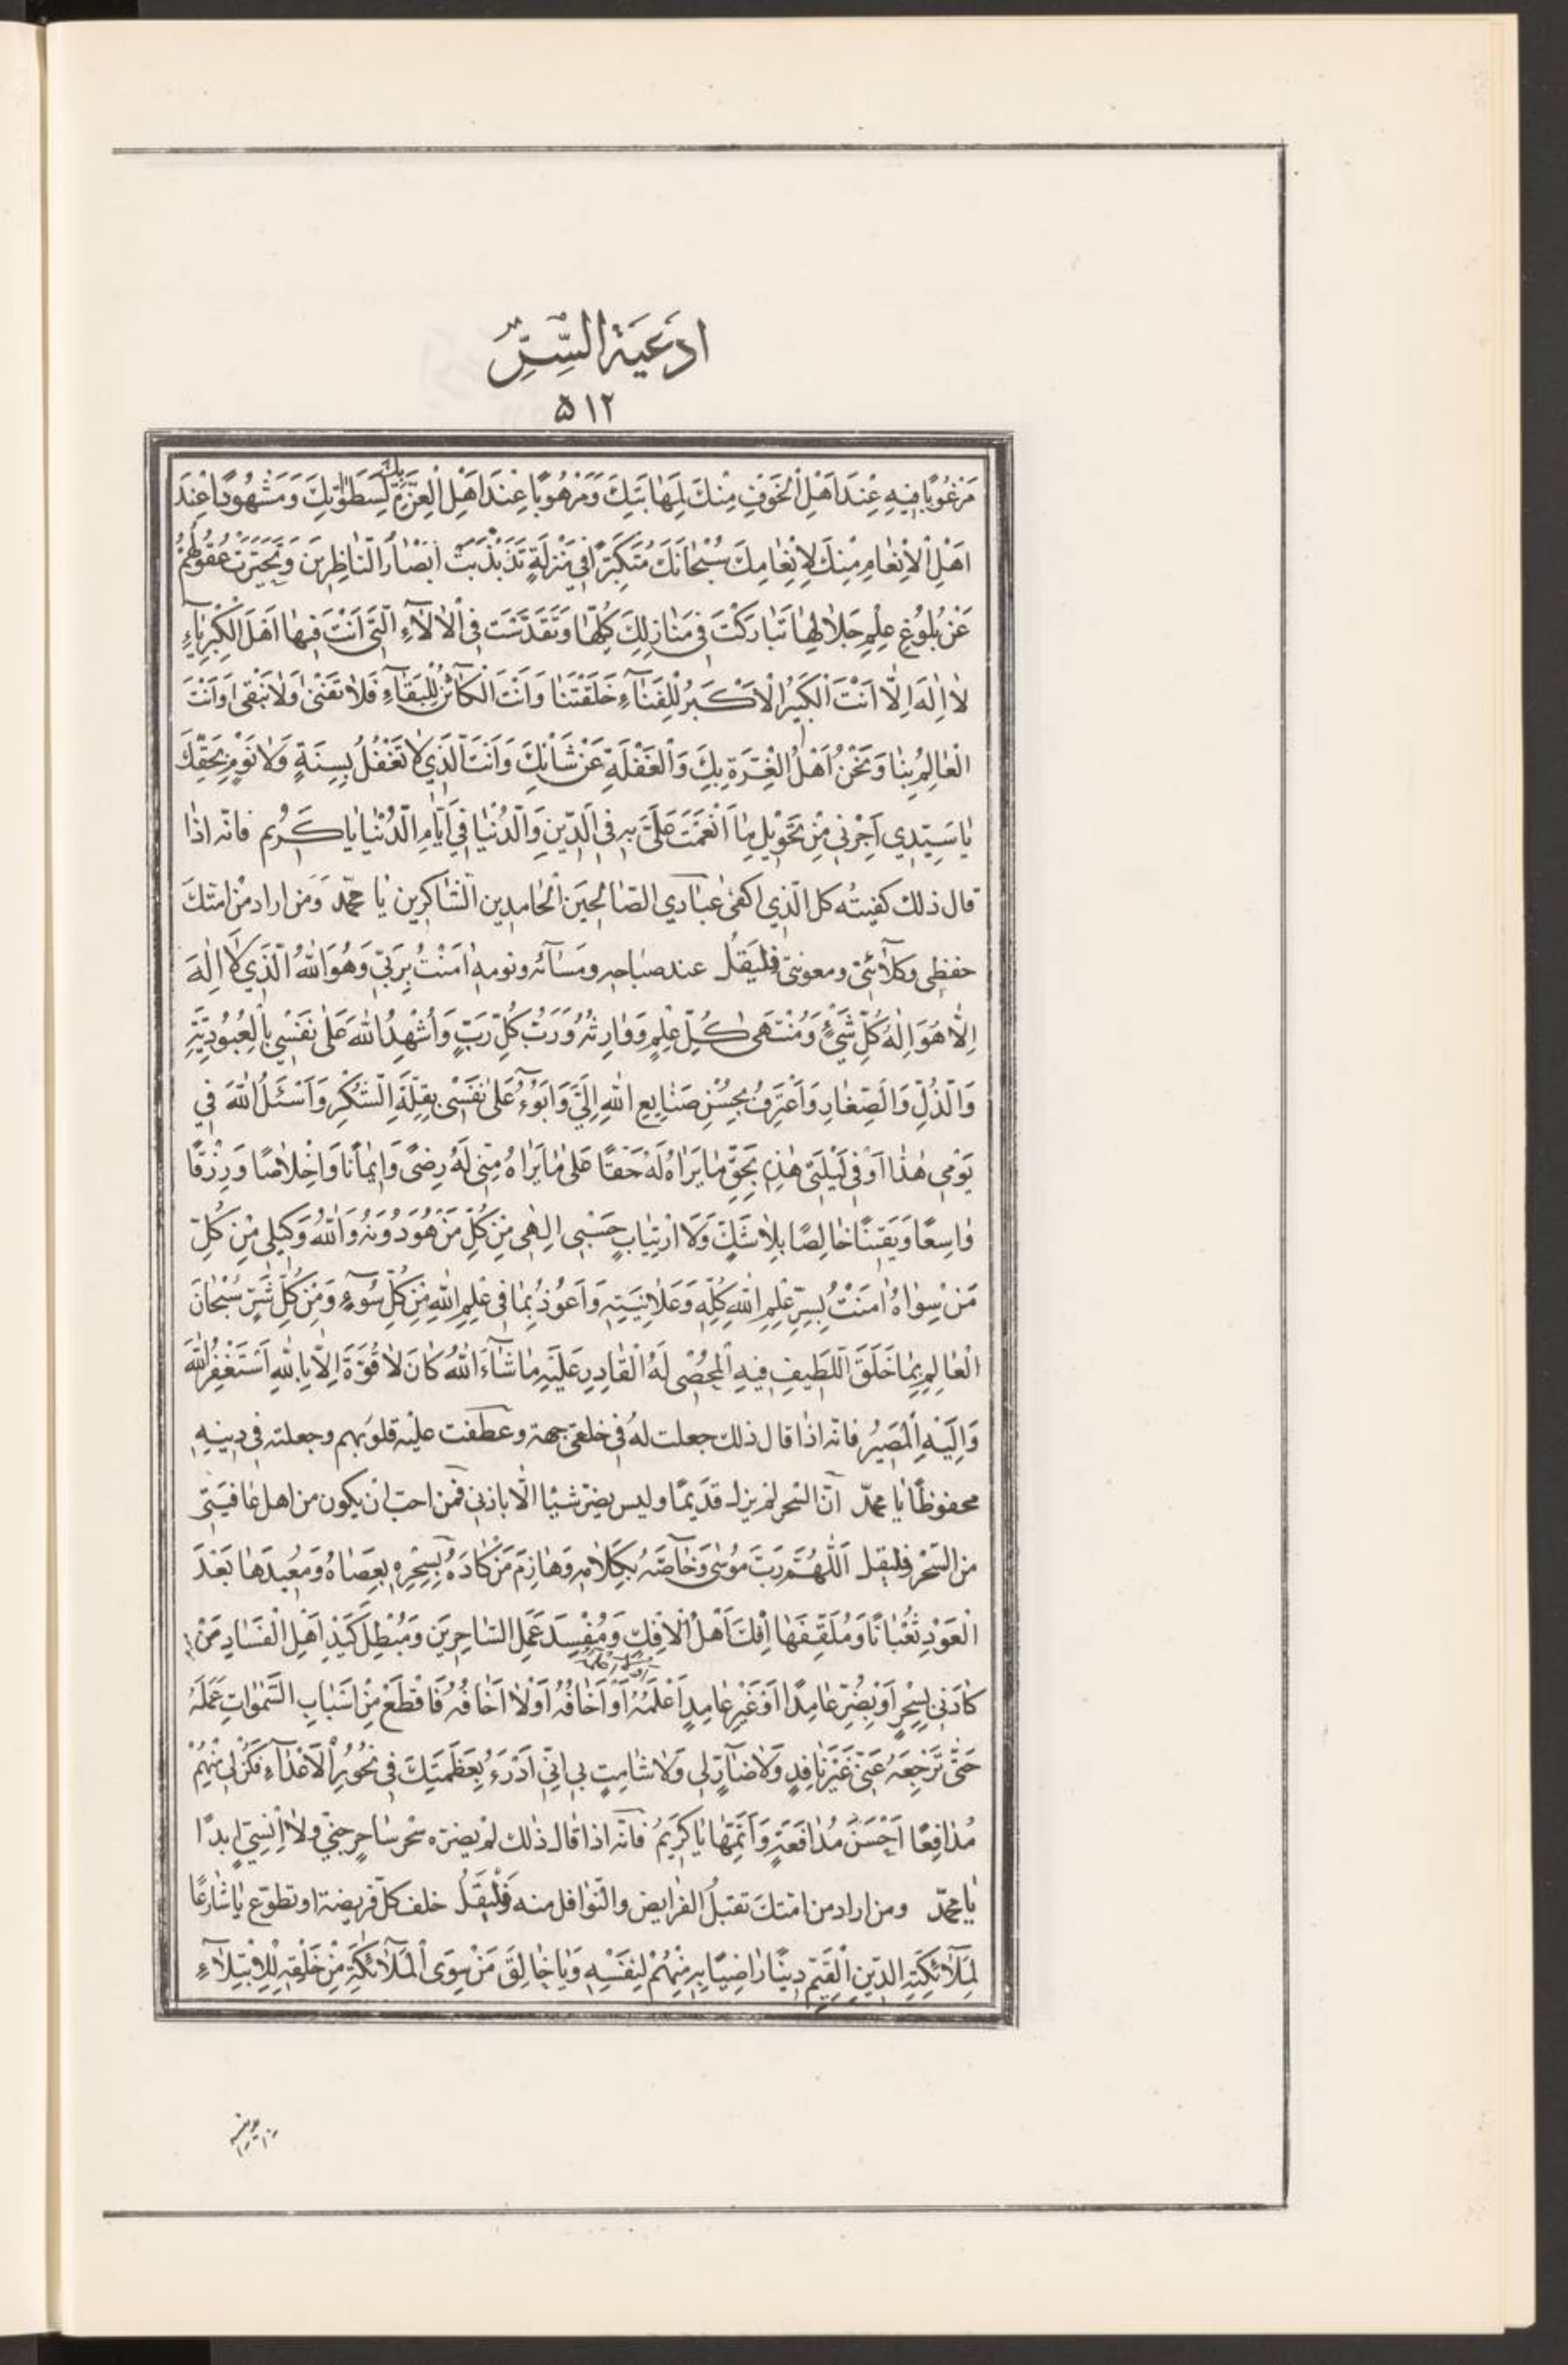 اَدْعِيَةُ السِّرِّ
۵۱۲
مَرْغُوبًا فِيهِ عِنْدَ اَهْلِ الْخَوْفِ مِنْكَ لِمَهَابَتِكَ وَمَرْهُوبًا عِنْدَ اَهْلِ الْعِزِّ بِكَ لِسَطَوٰتِكَ وَمَشْهُودًا عِنْدَ
اَهْلِ الْاِنْعَامِ مِنْكَ لِاِنْعَامِكَ سُبْحَانَكَ مُتَكَبِّرًا فِي مَنْزِلَةٍ تَذَبْذَبَتْ اَبْصَارُ النَّاظِرِينَ وَتَحَيَّرَتْ عُقُولُهُمْ
عَنْ بُلُوغِ عِلْمِ جَلَالِهَا تَبَارَكْتَ فِي مَنَازِلِكَ كُلِّهَا وَتَقَدَّسْتَ فِي الْاٰلَاۤءِ الَّتِي اَنْتَ فِيهَا اَهْلُ الْكِبْرِيَاۤءِ
لَا اِلٰهَ اِلَّا اَنْتَ الْكَبِيرُ الْاَكْبَرُ لِلْفَنَاۤءِ خَلَقْتَنَا وَاَنْتَ الْكَاۤئِنُ لِلْبَقَاۤءِ فَلَا تَفْنىٰ وَلَا نَبْقىٰ وَاَنْتَ
الْعَالِمُ بِنَا وَنَحْنُ اَهْلُ الْغِرَّةِ بِكَ وَالْغَفْلَةِ عَنْ شَاْنِكَ وَاَنْتَ الَّذِي لَا تَغْفُلُ بِسِنَةٍ وَلَا نَوْمٍ بِحَقِّكَ
يَا سَيِّدِي اَجِرْنِي مِنْ تَحْوِيلِ مَا اَنْعَمْتَ عَلَيَّ بِهِ فِي الدِّينِ وَالدُّنْيَا فِي اَيَّامِ الدُّنْيَا يَا كَرِيمُ فانّه اذا
قال ذلك كفيته كل الّذي اكفي عبادي الصّالحين الحامدين الشّاكرين يا محمّد وَمن اراد من امّتك
حفظي وكلاۤئتي ومعونتي فليقل عند صباحه ومساۤئه ونومه اٰمَنْتُ بِرَبِّي وَهُوَ اللهُ الَّذِي لَا اِلٰهَ
اِلَّا هُوَ اِلٰهُ كُلِّ شَيْءٍ وَمُنْتَهىٰ كُلِّ عِلْمٍ وَوَارِثُهُ وَرَبُّ كُلِّ رَبٍّ وَاُشْهِدُ اللهَ عَلىٰ نَفْسِي بِالْعُبُودِيَّةِ
وَالذُّلِّ وَالصِّغَارِ وَاَعْتَرِفُ بِحُسْنِ صَنَايِعِ اللهِ اِلَيَّ وَاَبُوۤءُ عَلىٰ نَفْسِي بِقِلَّةِ الشُّكْرِ وَاَسْئَلُ اللهَ فِي
يَوْمِي هٰذَا اَوْ فِي لَيْلَتِي هٰذِهِ بِحَقِّ مَا يَرَاهُ لَهُ حَقًّا عَلىٰ مَا يَرَاهُ مِنِّي لَهُ رِضًى وَاِيمَانًا وَاِخْلَاصًا وَرِزْقًا
وَاسِعًا وَيَقِينًا خَالِصًا بِلَا شَكٍّ وَلَا ارْتِيَابٍ حَسْبِي اِلٰهِي مِنْ كُلِّ مَنْ هُوَ دُونَهُ وَاللهُ وَكِيلِي مِنْ كُلِّ
مَنْ سِوَاهُ اٰمَنْتُ بِسِرِّ عِلْمِ اللهِ كُلِّهِ وَعَلَانِيَتِهِ وَاَعُوذُ بِمَا فِي عِلْمِ اللهِ مِنْ كُلِّ سُوۤءٍ وَمِنْ كُلِّ شَرٍّ سُبْحَانَ
الْعَالِمِ بِمَا خَلَقَ اللَّطِيفِ فِيهِ الْمُحْصِي لَهُ الْقَادِرِ عَلَيْهِ مَا شَاۤءَ اللهُ كَانَ لَا قُوَّةَ اِلَّا بِاللهِ اَسْتَغْفِرُ اللهَ
وَاِلَيْهِ الْمَصِيرُ فانّه اذا قال ذلك جعلت له في خلقي جهة وعطفت عليه قلوبهم وجعلته في دينه
محفوظًا يا محمّد انّ السّحر لم يزل قديمًا وليس يضرّ شيئا الّا باذني فمن احبّ ان يكون من اهل عافيتي
من السّحر فليقل اَللّٰهُمَّ رَبَّ مُوسىٰ وَخَاۤصَّهُ بِكَلَامِهِ وَهَازِمَ مَنْ كَادَهُ بِسِحْرِهِ بِعَصَاهُ وَمُعِيدَهَا بَعْدَ
الْعَوْدِ ثُعْبَانًا وَمُلَقِّفَهَا اِفْكَ اَهْلِ الْاِفْكِ وَمُفْسِدَ عَمَلِ السَّاحِرِينَ وَمُبْطِلَ كَيْدِ اَهْلِ الْفَسَادِ مَنْ
كَادَنِي بِسِحْرٍ اَوْ بِضُرٍّ عَامِدًا اَوْ غَيْرِ عَامِدٍ اَعْلَمُهُ اَوْ اَخَافُهُ اَوْ لَا اَخَافُهُ فَاقْطَعْ مِنْ اَسْبَابِ السَّمٰوَاتِ عَمَلَهُ
حَتّىٰ تَرْجِعَهُ عَنِّي غَيْرَ نَافِذٍ وَلَا ضَاۤرٍّ لِي وَلَا شَامِتٍ بِي اِنِّي اَدْرَءُ بِعَظَمَتِكَ فِي نُحُورِ الْاَعْدَاۤءِ فَكُنْ لِي مِنْهُمْ
مُدَافِعًا اَحْسَنَ مُدَافَعَةٍ وَاَتَمَّهَا يَا كَرِيمُ فانّه اذا قال ذلك لم يضرّه سحر ساحر جنّي ولا انسيّ ابدًا
يا محمّد ومن اراد من امّتك تقبل الفرايض والنّوافل منه فَلْيَقُل خلف كلّ فريضة او تطوّع يَا شَارِعًا
لِمَلَاۤئِكَتِهِ الدِّينَ الْقَيِّمَ دِينًا رَاضِيًا بِهِ مِنْهُمْ لِنَفْسِهِ وَيَا خَالِقَ مَنْ سِوَى الْمَلَاۤئِكَةِ مِنْ خَلْقِهِ لِلْاِبْتِلَاۤءِ